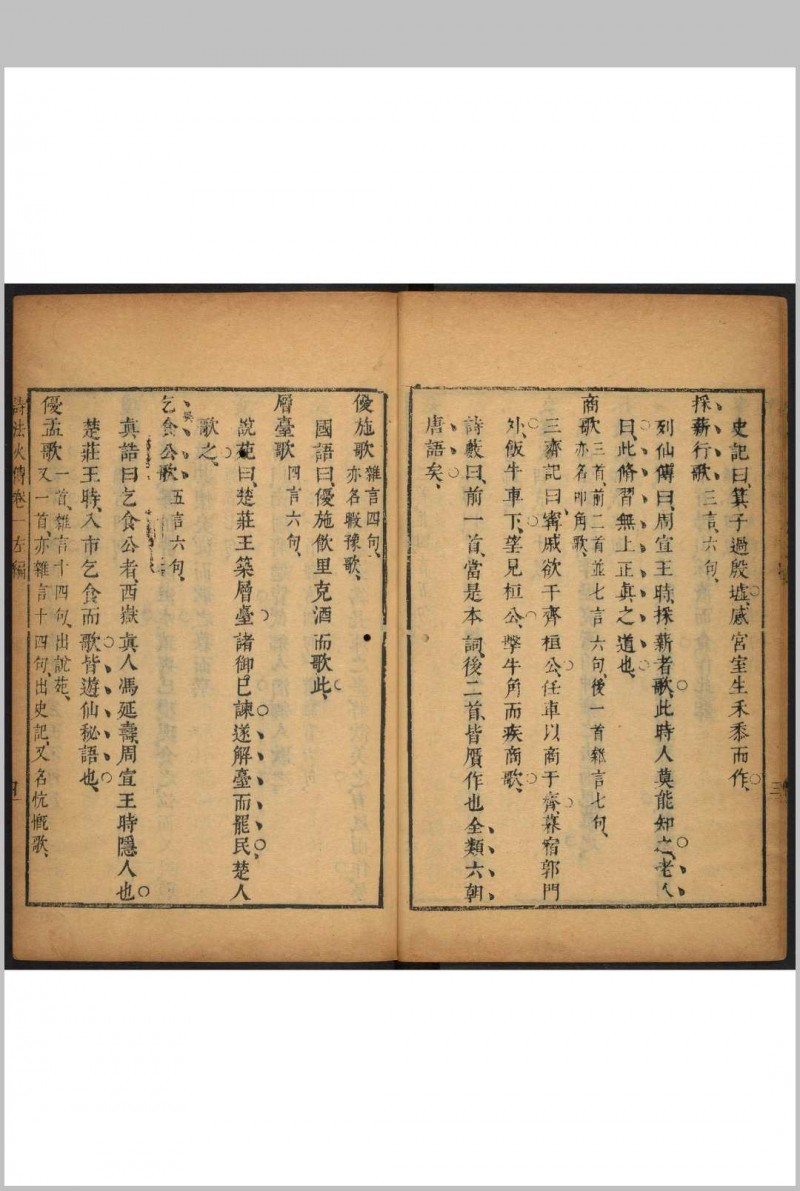 史記曰、箕子過殷墟、感宮室生禾黍而作、
採薪行歌 三言、六句、
列仙傳曰、周宣王時、採薪者歌、此時人莫能知之、老人
曰、此脩習無上正真之道也、
商歌 三首、前二首並七言六句、後一首雜言七句、
亦名叩角歌、
三齊記曰、甯戚欲干齊桓公、任車以商于齊、暮宿郭門
外、飯牛車下、望見桓公、擊牛角而疾商歌、
詩藪曰、前一首、當是本詞、後二首、皆贋作也、全類六朝、
唐語矣、
優施歌 雜言四句、
亦名暇豫歌、
國語曰、優施飲里克酒而歌此、
層臺歌 四言六句、
說苑曰、楚莊王築層臺、諸御已諫、遂解臺而罷民、楚人
歌之、
乞食公歌 五言六句、
真誥曰、乞食公者、西嶽真人馮延壽、周宣王時隱人也
楚莊王時、入市乞食而歌、皆遊仙秘語也、
優孟歌 一首、雜言十四句、出說苑、
又一首、亦雜言十四句、出史記、又名忼慨歌、
詩法火傳 卷一左編 四
三